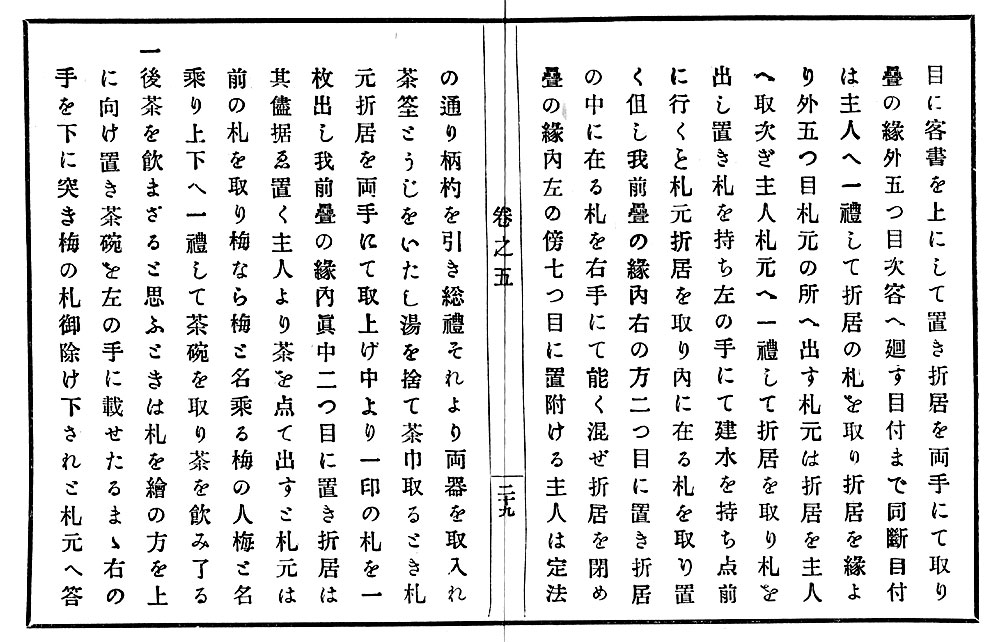 目に客書を上にして置き折居を両手にて取り
疊の縁外五つ目次客へ廻す目付まで同斷目付
は主人へ一禮して折居の札を取り折居を縁よ
り外五つ目札元の所へ出す札元は折居を主人
へ取次ぎ主人札元へ一禮して折居を取り札を
出し置き札を持ち左の手にて建水を持ち点前
に行くと札元折居を取り內に在る札を取り置
く但し我前疊の縁內右の方二つ目に置き折居
の中に在る札を右手にて能く混ぜ折居を閉め
疊の縁內左の傍七つ目に置附ける主人は定法
卷之五
二十九
の通り柄杓を引き総禮それより両器を取入れ
茶筌とうじをいたし湯を捨て茶巾取るとき札
元折居を両手にて取上げ中より一印の札を一
枚出し我前疊の縁內眞中二つ目に置き折居は
其儘据ゑ置く主人より茶を点て出すと札元は
前の札を取り梅なら梅と名乘る梅の人梅と名
乘り上下へ一禮して茶碗を取り茶を飲み了る
一後茶を飲まざると思ふときは札を繪の方を上
に向け置き茶碗を左の手に載せたるまゝ右の
手を下に突き梅の札御除け下されと札元へ答